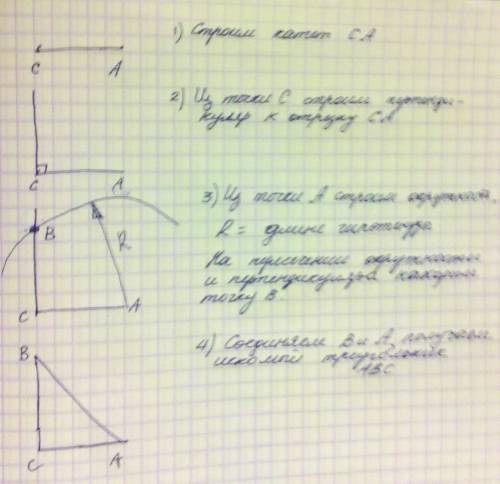 1) Строим катет CA
C A
2) Из точки C строим перпенди-
куляр к отрезку CA
C A
3) Из точки A строим окружность,
R = длине гипотенузы
На пересечении окружности
и перпендикуляра находим
точку B.
B R
C A
4) Соединяем B и A, получаем
искомый треугольник
ABC
B
C A